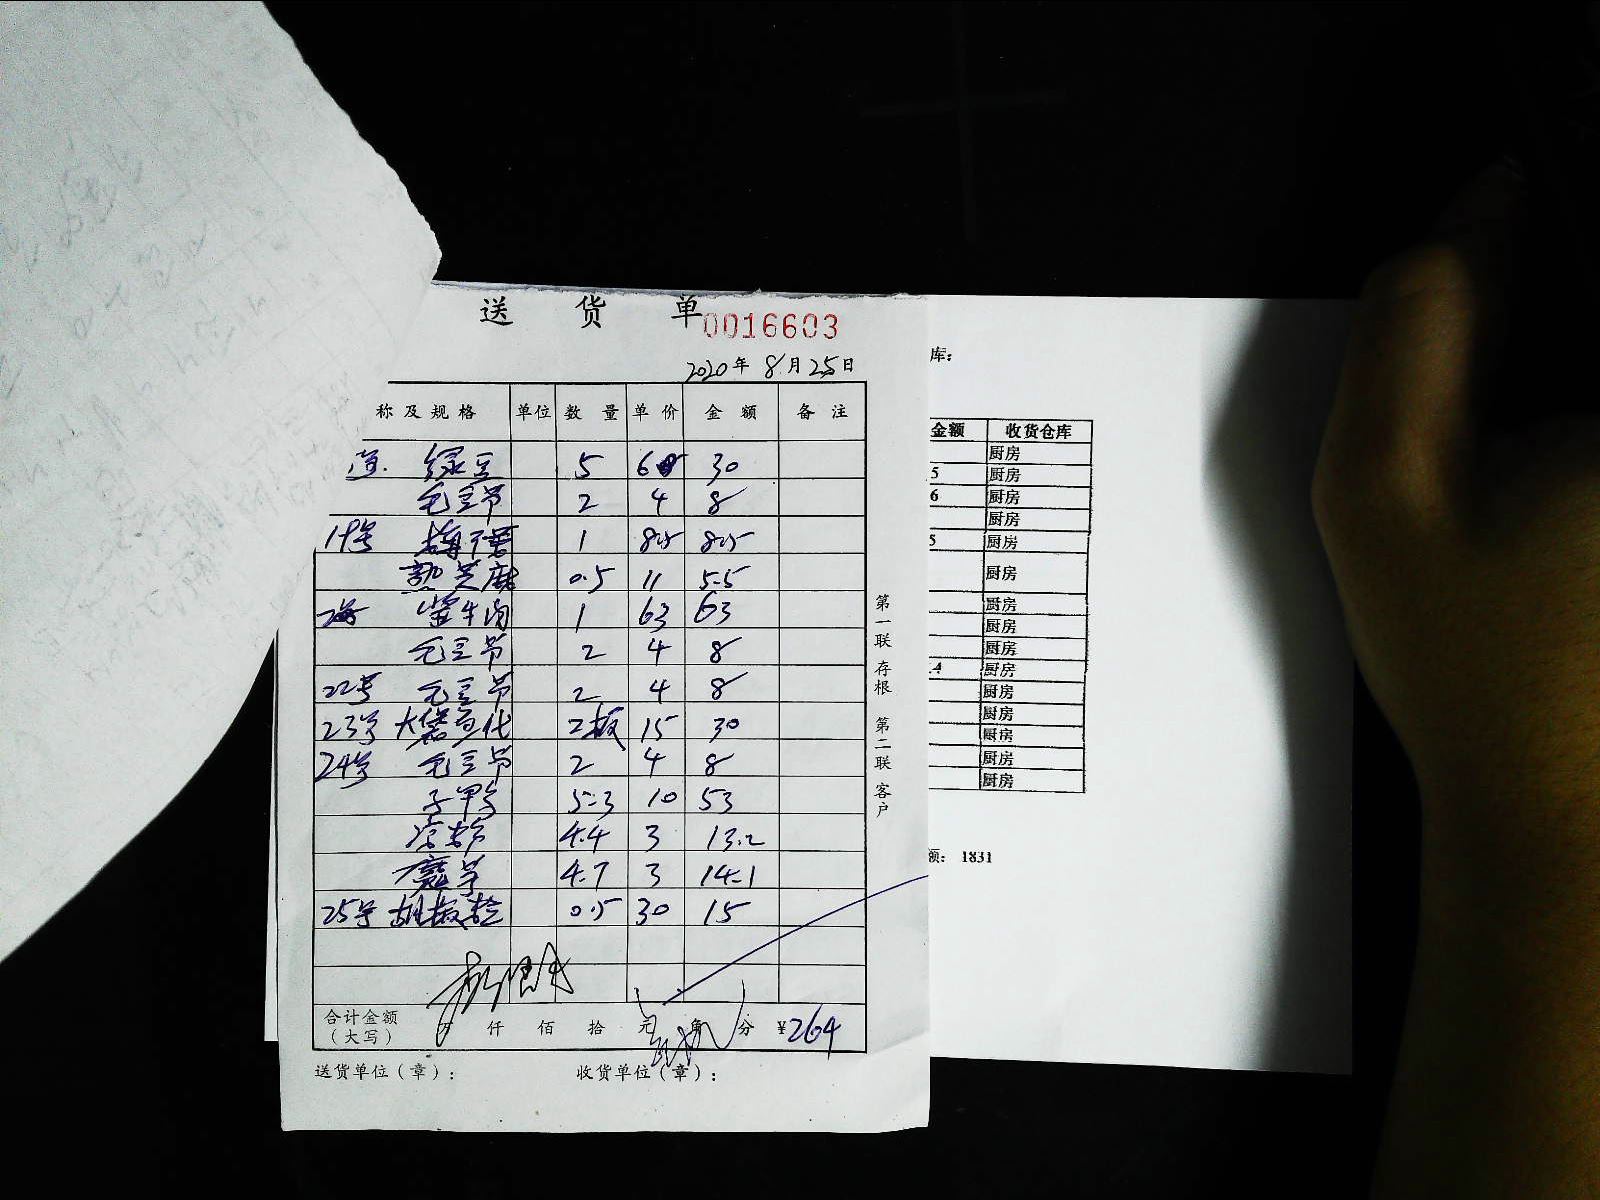 送 货 单
0016603
2020年 8月25日
称及规格 单位 数量 单价 金额 备注
绿豆 5 6 30
毛豆节 2 4 8
19号 1 8.5 8.5
熟芝麻 0.5 11 5.5
牛肉 1 63 63
毛豆节 2 4 8
22号 毛豆节 2 4 8
23号 2板 15 30
24号 毛豆节 2 4 8
子鸭 5.3 10 53
4.4 3 13.2
魔芋 4.7 3 14.1
25号 胡椒 0.5 30 15
合计金额（大写） 万 仟 佰 拾 元 角 分 ¥264
送货单位（章）： 收货单位（章）：
第一联 存根 第二联 客户
库：
金额 收货仓库
厨房
5 厨房
6 厨房
厨房
5 厨房
厨房
厨房
厨房
厨房
.4 厨房
厨房
厨房
厨房
厨房
厨房
额： 1831